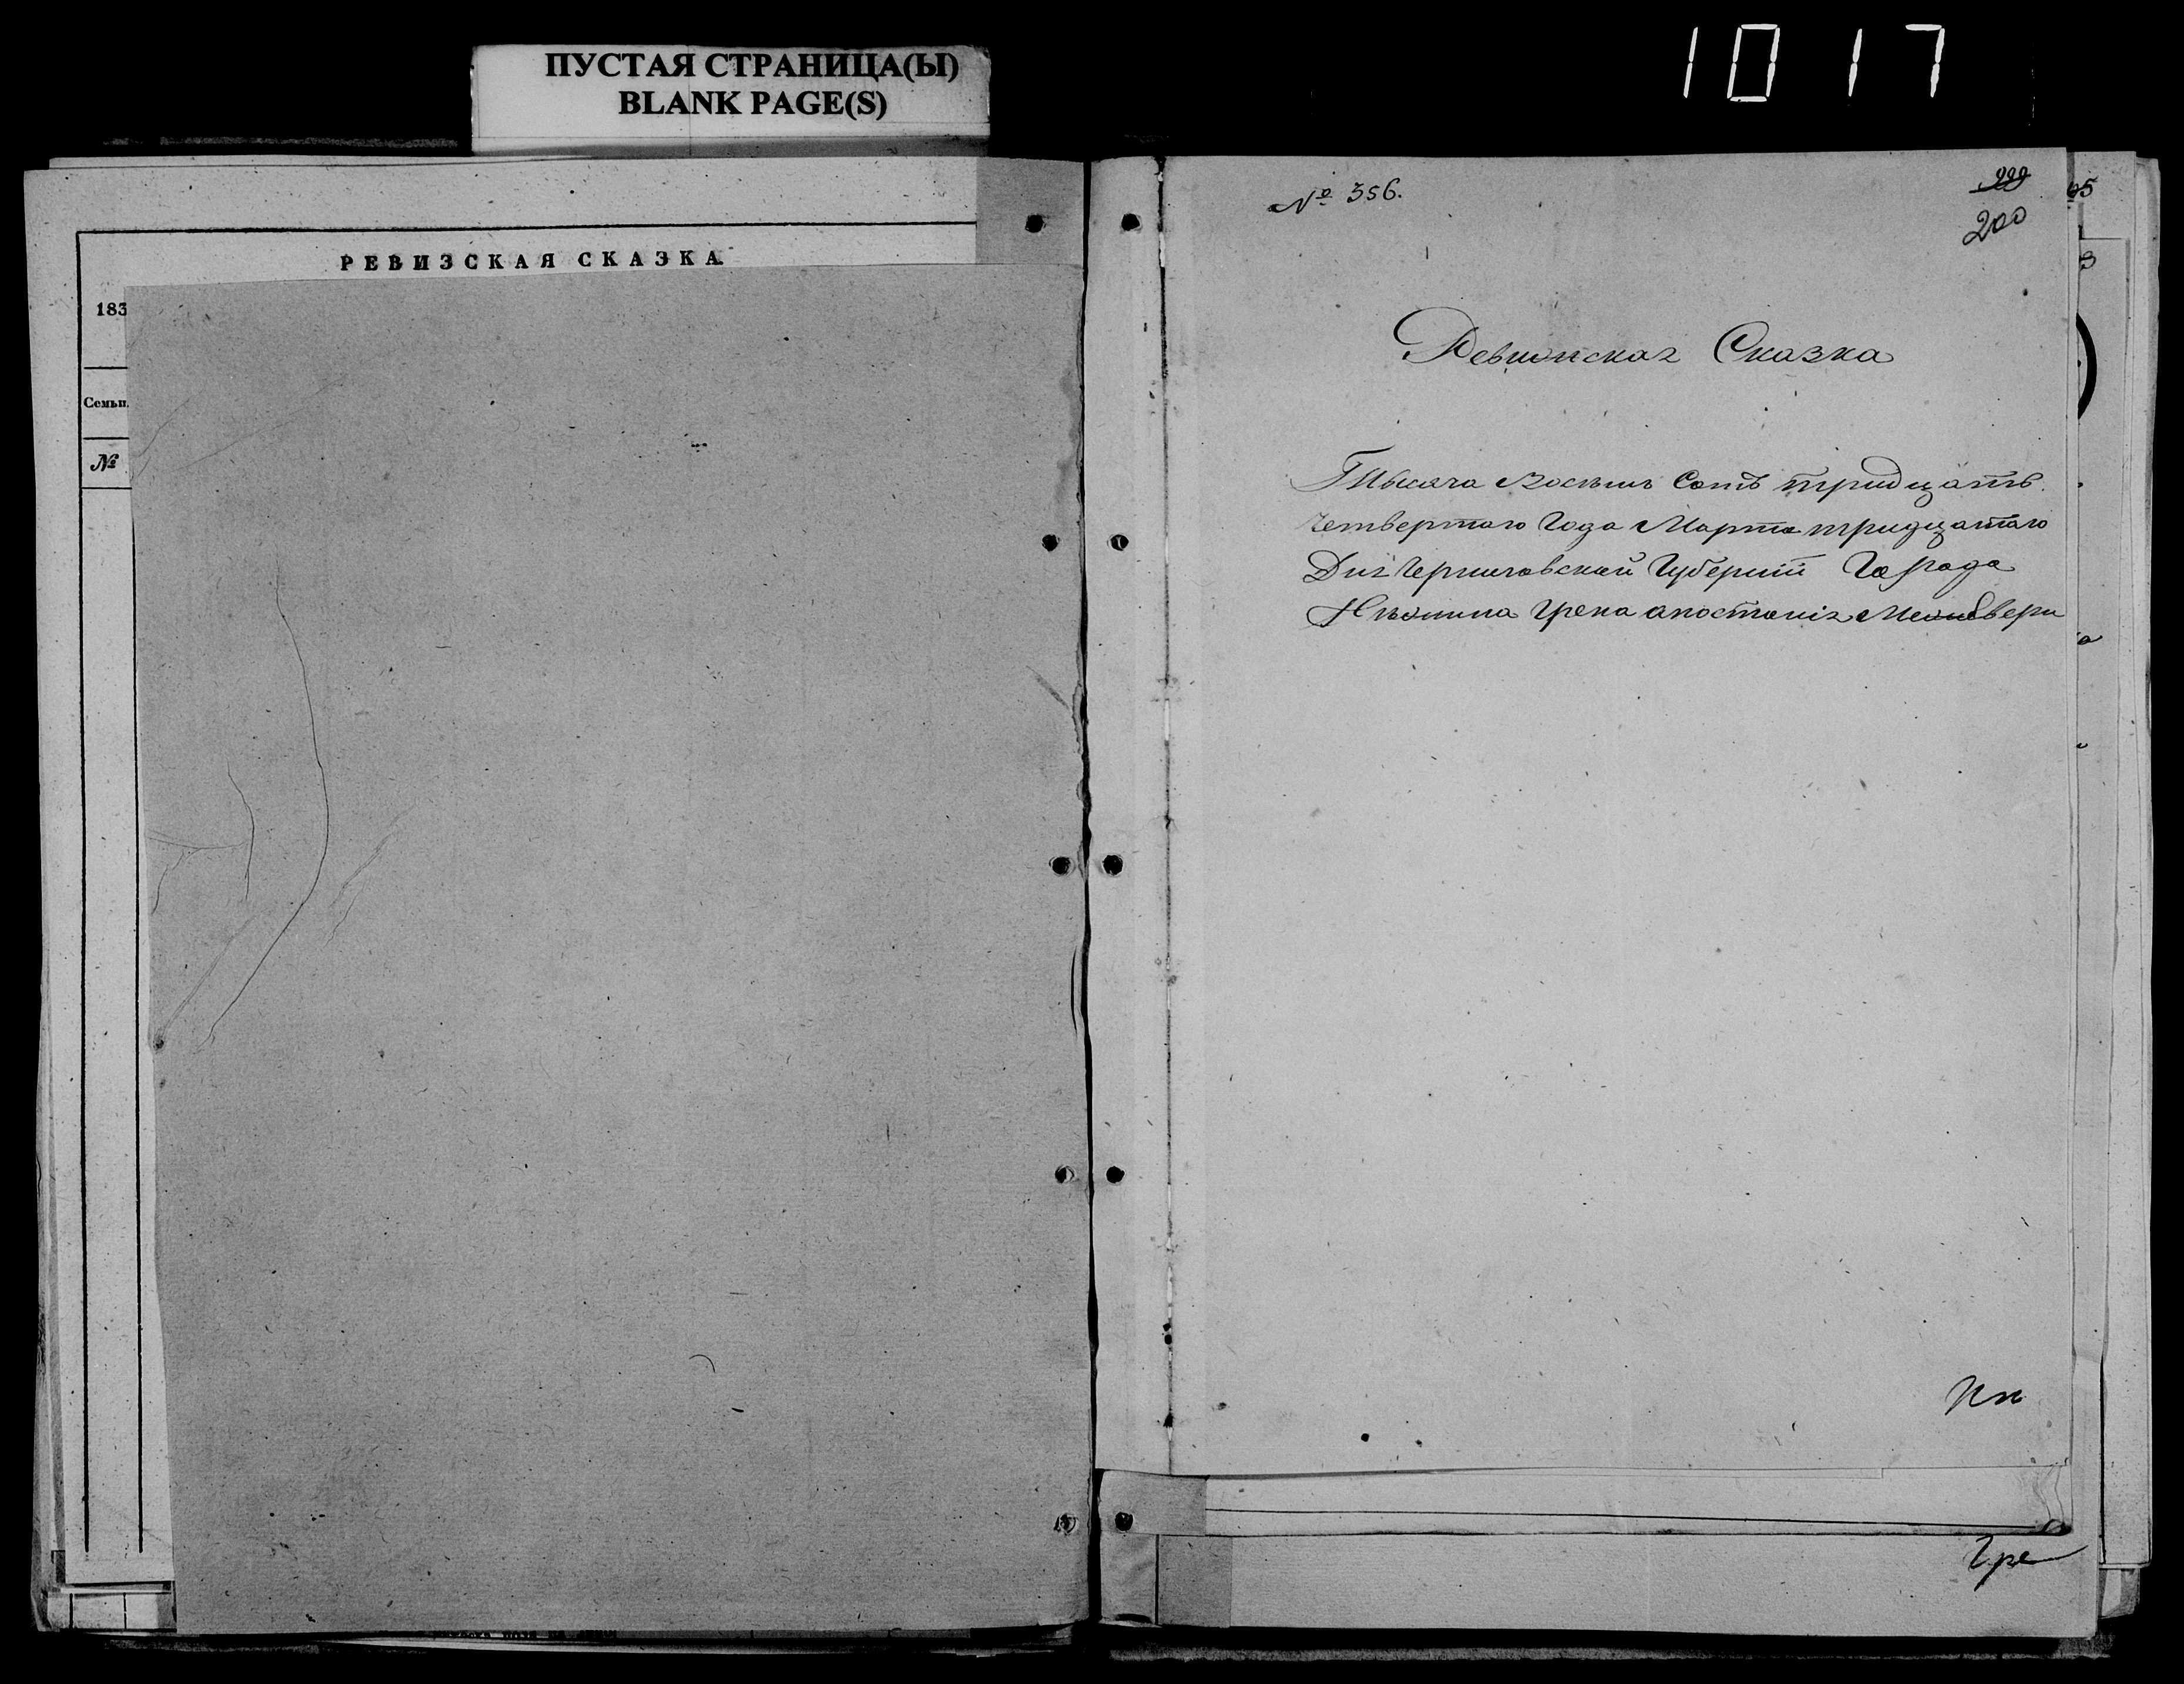 ПУСТАЯ СТРАНИЦА(Ы)
BLANK PAGE(S)
1017
РЕВИЗСКАЯ СКАЗКА.
183
Семьи.
№
№ 356.
200
95
Ревизская Сказка
Тысяча Восемь Сотъ тридцать
Четвертаго Года Марта тридцатаго
Дня Черниговской Губернiи Города
Нѣжина Грека
Гре